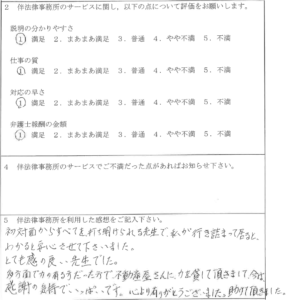 2 伴法律事務所のサービスに関し、以下の点について評価をお願いします。
説明の分かりやすさ
1 満足 2．まあまあ満足 3．普通 4．やや不満 5．不満
仕事の質
1 満足 2．まあまあ満足 3．普通 4．やや不満 5．不満
対応の早さ
1 満足 2．まあまあ満足 3．普通 4．やや不満 5．不満
弁護士報酬の金額
1 満足 2．まあまあ満足 3．普通 4．やや不満 5．不満
4 伴法律事務所のサービスでご不満だった点があればお知らせ下さい。
5 伴法律事務所を利用した感想をご記入下さい。
初対面からすべてを打ち明けられる先生で、私が行き詰まってると、
わかると安心させて下さいました。
とても感の良い先生でした。
多方面で力の有る方だったので、不動産屋さんに、力を貸して頂きまして、今は
感謝の気持でいっぱいです。心より有りがとうございました。助けて頂きました。